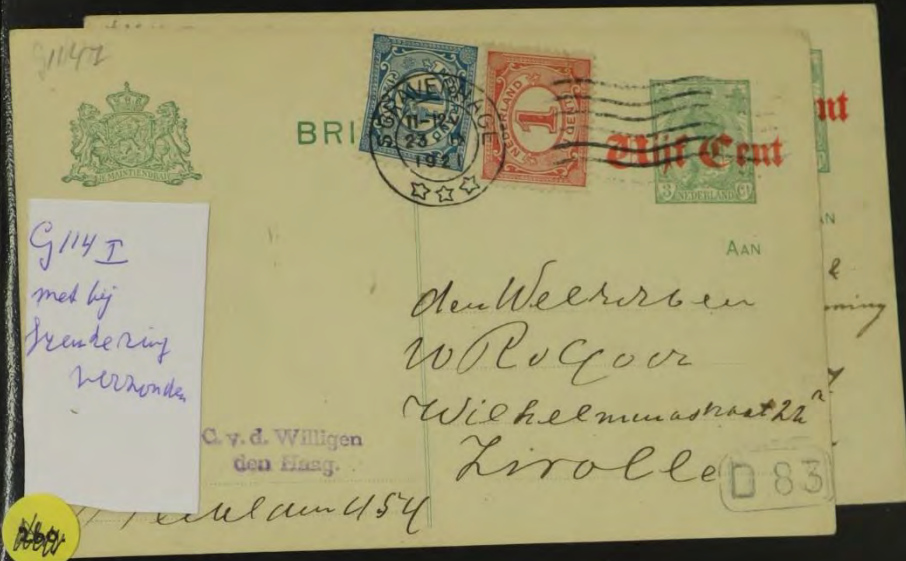 G114 I
JE MAINTIENDRAI
BRI
'S GRAVENHAGE
11-12V
23
1921
1
NEDERLAND
1
CENT
Vijf Cent
3 NEDERLAND Ct
nt
AAN
G114 I
met bij
frankering
verzonden
den Weledelen
W R v Goor
Wilhelminastraat 22
Zwolle
D 83
C. v. d. Willigen
den Haag.
454
260